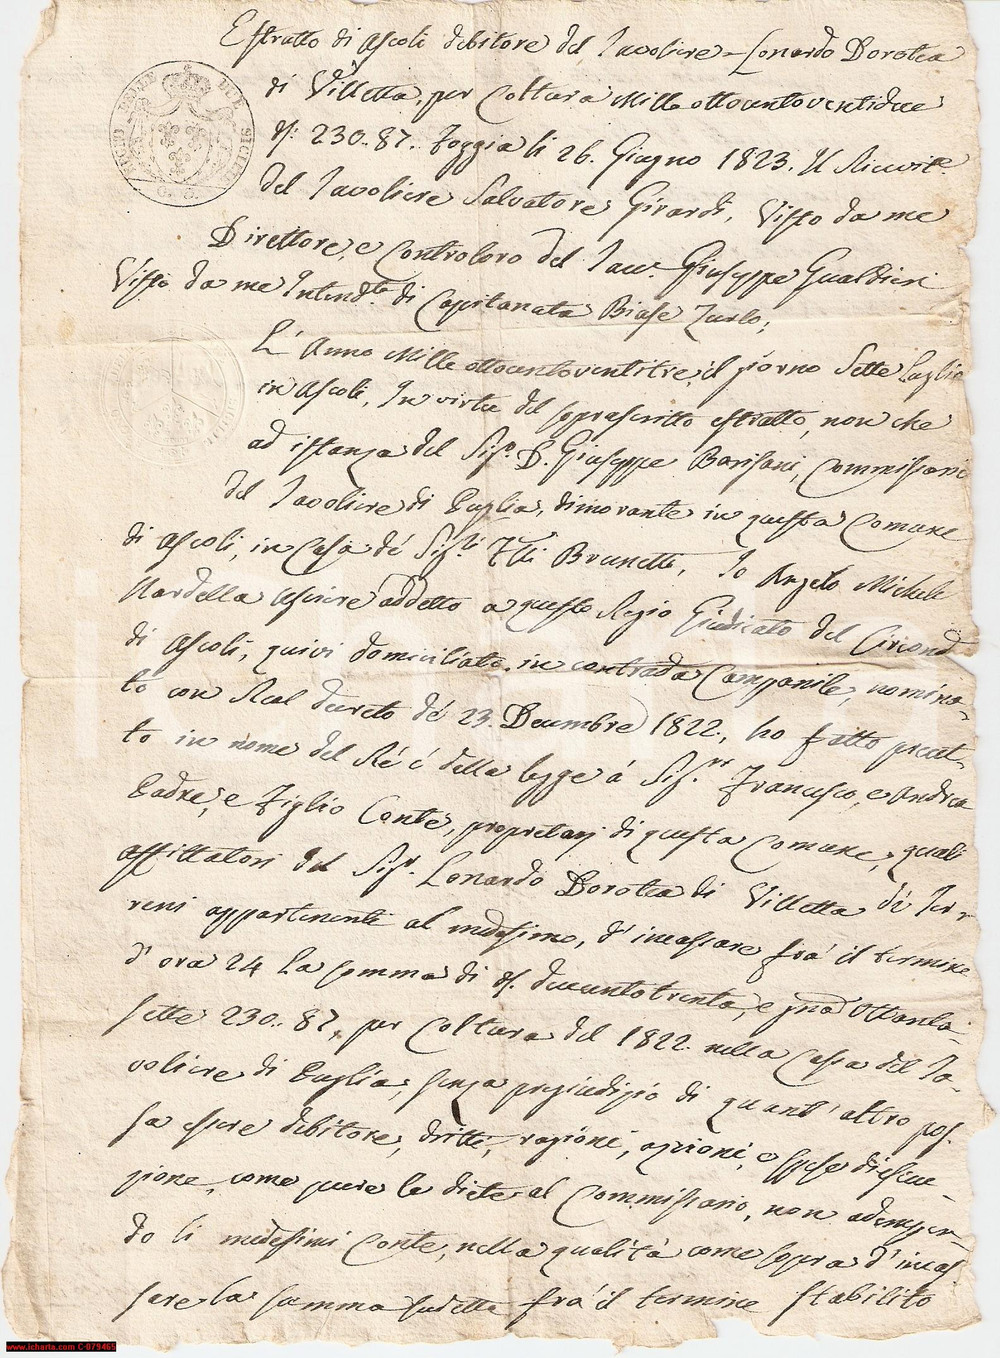 Estratto di Ascoli debitore del Tavoliere = Lonardo Dorotea
di Villetta, per Coltura Mille ottocentoventidue
d: 230..87. Foggia li 26. Giugno 1823. Il Ricevit.e
del Tavoliere Salvatore Girardi, Visto da me
Direttore, e Controloro del Tav.e Giuseppe Gualtieri
Visto da me Intend.te di Capitanata Biase Zurlo,
L'Anno Mille ottocentoventitre, il giorno Sette Luglio
in Ascoli, In virtù del soprascritto estratto, non che
ad istanza del Sig.e D. Giuseppe Barisani, Commissario
del Tavoliere di Puglia, dimorante in questa Comune
di Ascoli, in Casa de' Sig.ri F.lli Brunetti, Io Angelo Michele
Nardella Usciere addetto a questo Regio Giudicato del Circond.
di Ascoli, quivi domiciliato in contrada Campanile, nomina-
to con Real decreto de' 23. Decembre 1822., ho fatto precet-
to in nome del Rè è della legge à Sig.rr Francesco, e Andrea
Padre, e Figlio Conte, proprietarj di questa Comune, quali
affittatori del Sig.r Lonardo Dorotea di Villetta de' Ter-
reni appartenenti al medesimo, d'incassare frà il termine
d'ora 24 la somma di d. duecentotrenta, e gna Ottanta-
sette 230..87, per Coltura del 1822. nella Cassa del Ta-
voliere di Puglia, senza pregiudizio di quant'altro pos-
sa essere debitore, dritti, ragioni, azioni, e spese di esecu-
zione, come pure le diete al Commissario, non adempien-
do li medesimi Conte, nella qualità come sopra d'incas
sare la somma sudetta frà il termine stabilito
www.icharta.com C-079465